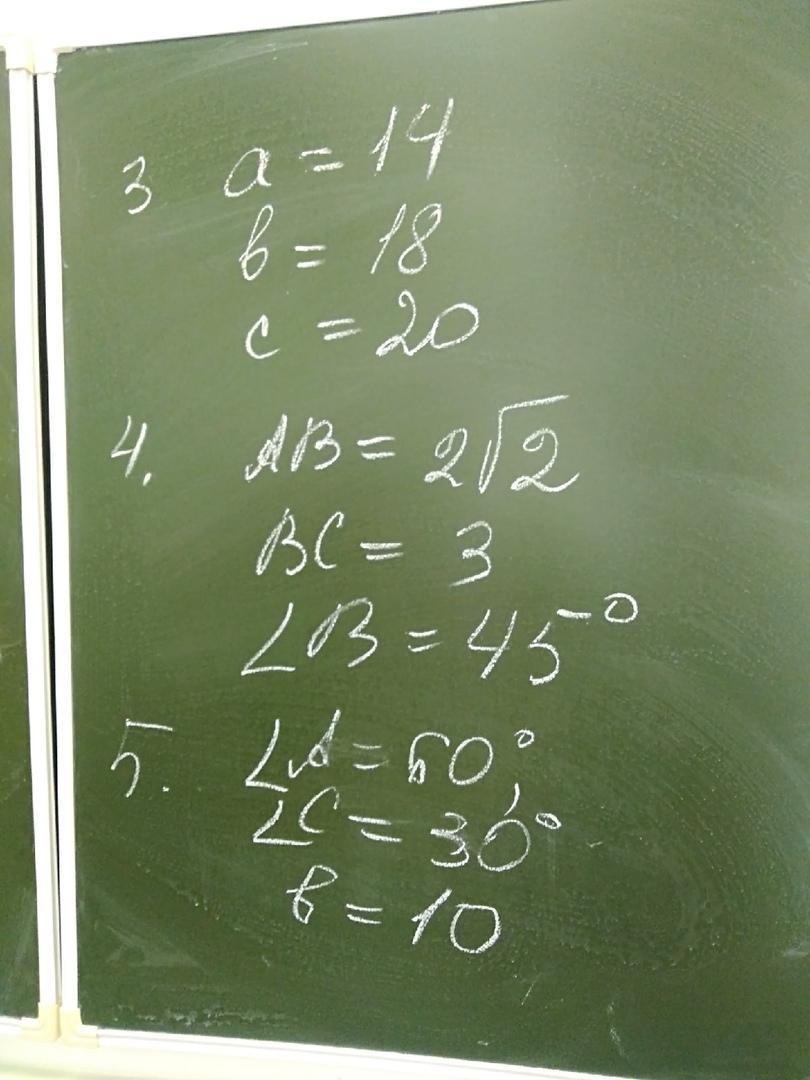 3 a = 14
b = 18
c = 20
4. AB = 2√2
BC = 3
∠B = 45°
5. ∠A = 60°,
∠C = 30°
b = 10